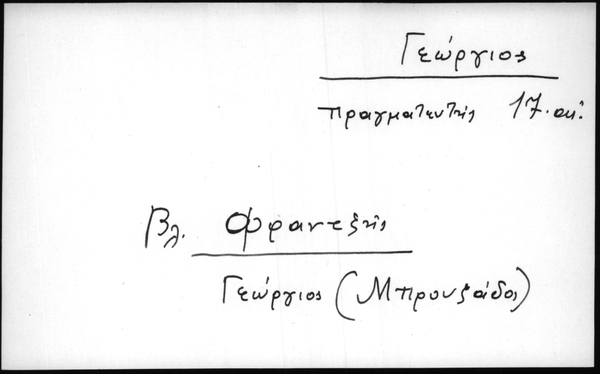 Γεώργιος
πραγματευτής 17. αι.
Βλ. Φραντζής
Γεώργιος (Μπρουζάδος)